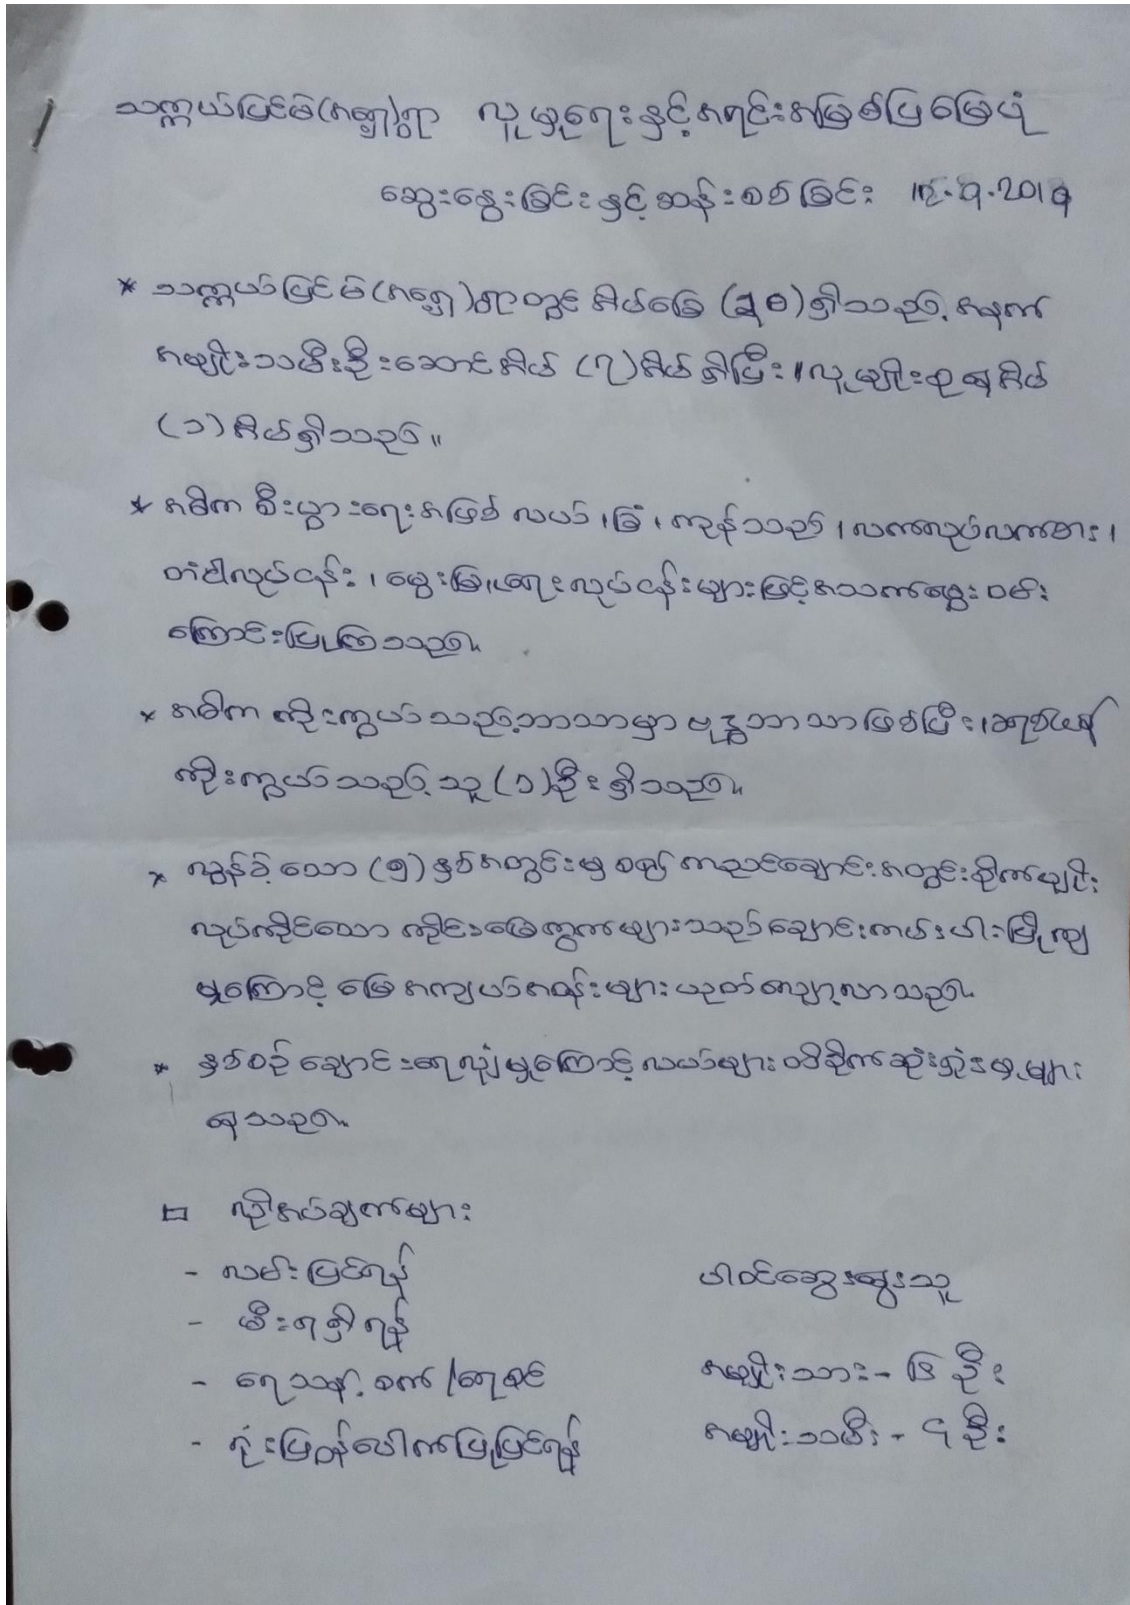 သက္ကယ်ပြင်မ(အရှေ့)ရွာ လူမှုရေးနှင့်အရင်းအမြစ်ပြမြေပုံ
ဆွေးနွေးခြင်းနှင့်ဆန်းစစ်ခြင်း
* သက္ကယ်ပြင်မ(အရှေ့)ရွာတွင် အိမ်ခြေ ရှိသည့်အနက်
အမျိုးသမီးဦးဆောင်အိမ် (၇)အိမ်ရှိပြီး၊ လူမျိုးစု အိမ်
(၁)အိမ်ရှိသည်။
* အဓိက စီးပွားရေးအဖြစ် လယ်၊ ခြံ၊ ကုန်သည်၊ လက်လုပ်လက်စား၊
တံငါလုပ်ငန်း၊ မွေးမြူရေးလုပ်ငန်းများဖြင့်အသက်မွေးဝမ်း
ကြောင်းပြုကြသည်။
* အဓိက ကိုးကွယ်သည့်ဘာသာမှာ ဗုဒ္ဓဘာသာဖြစ်ပြီး၊
ကိုးကွယ်သည့်သူ (၁)ဦးရှိသည်။
* လွန်ခဲ့သော (၅)နှစ်အတွင်းမှ စ၍ ကညင်ချောင်းအတွင်းစိုက်ပျိုး
လုပ်ကိုင်သော ကိုင်းမြေကွက်များသည်ချောင်းကမ်းပါးပြိုကျ
မှုကြောင့် မြေအကျယ်အဝန်းများယုတ်လျော့လာသည်။
* နှစ်စဉ် ချောင်းရေလျှံမှုကြောင့်လယ်များထိခိုက်ဆုံးရှုံးမှုများ
ရသည်။
□ လိုအပ်ချက်များ
- လမ်းပြင်ရန်
- မီးရရှိရန်
- ရေသန့်စက်/ရေစင်
- ရုံးပြတိုက်ပေါက်ပြုပြင်ရန်
ပါဝင်ဆွေးနွေးသူ
အမျိုးသား - ၆ ဦး
အမျိုးသမီး - ၄ ဦး